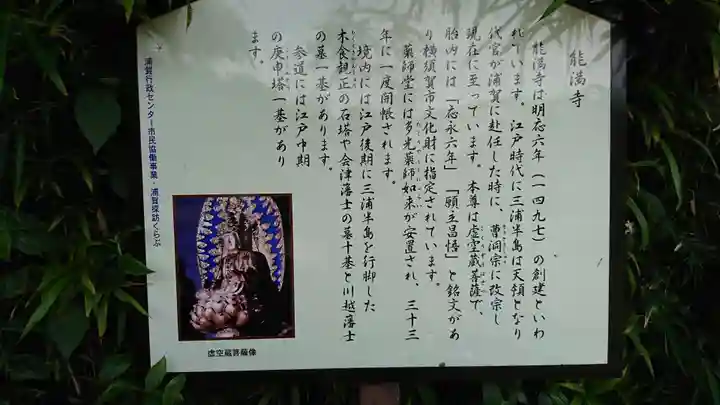 能満寺
能満寺は明応六年（一四九七）の創建といわ
れています。江戸時代に三浦半島は天領となり
代官が浦賀に赴任した時に、曹洞宗に改宗し
現在に至っています。本尊は虚空蔵菩薩で、
胎内には「応永六年」「願主昌悟」と銘文があ
り横須賀市文化財に指定されています。
薬師堂には多光薬師如来が安置され、三十三
年に一度開帳されます。
境内には江戸後期に三浦半島を行脚した
木食観正の石塔や会津藩士の墓十基と川越藩士
の墓一基があります。
参道には江戸中期
の庚申塔一基があり
ます。
浦賀行政センター市民協働事業・浦賀探訪くらぶ
虚空蔵菩薩像